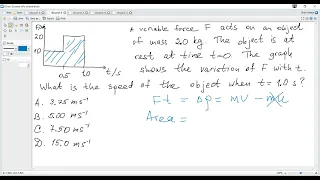 F/N
20
10
0.5 1.0 t/s
A variable force F acts on an object
of mass 2.0 kg. The object is at
rest at time t=0. The graph
shows the variation of F with t.
What is the speed of the object when t = 1.0 s?
A. 3.75 ms⁻¹
B. 5.00 ms⁻¹
C. 7.50 ms⁻¹
D. 15.0 ms⁻¹
Ft = Δp = mv - mu
Area =